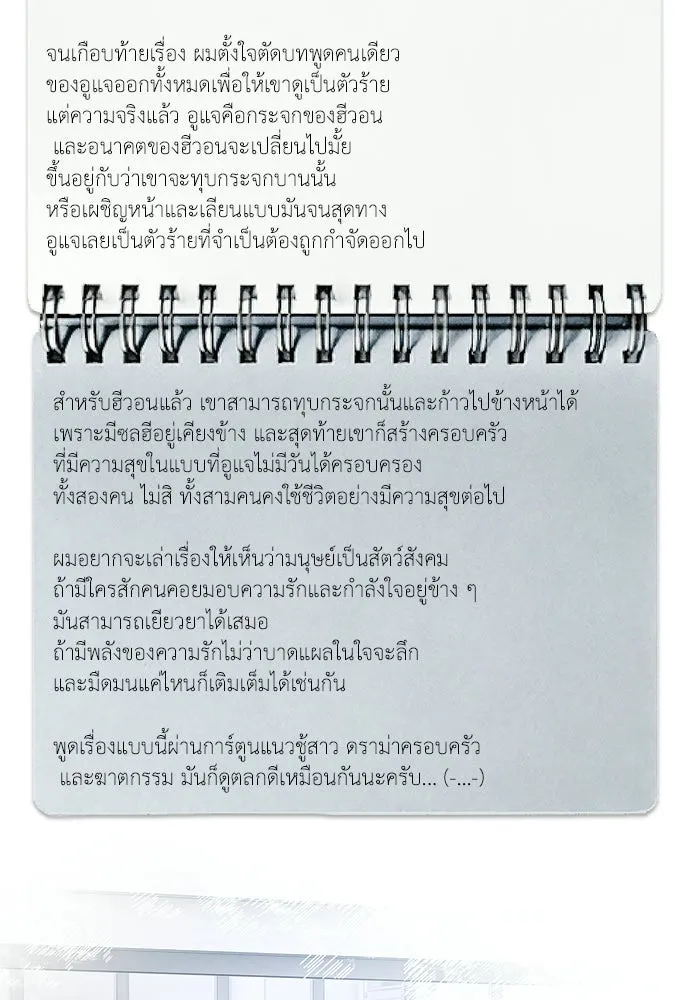 จนเกือบท้ายเรื่อง ผมตั้งใจตัดบทพูดคนเดียว
ของอูแจออกทั้งหมดเพื่อให้เขาดูเป็นตัวร้าย
แต่ความจริงแล้ว อูแจคือกระจกของฮีวอน
และอนาคตของฮีวอนจะเปลี่ยนไปมั้ย
ขึ้นอยู่กับว่าเขาจะทุบกระจกบานนั้น
หรือเผชิญหน้าและเลียนแบบมันจนสุดทาง
อูแจเลยเป็นตัวร้ายที่จำเป็นต้องถูกกำจัดออกไป
สำหรับฮีวอนแล้ว เขาสามารถทุบกระจกนั้นและก้าวไปข้างหน้าได้
เพราะมีซลฮีอยู่เคียงข้าง และสุดท้ายเขาก็สร้างครอบครัว
ที่มีความสุขในแบบที่อูแจไม่มีวันได้ครอบครอง
ทั้งสองคน ไม่สิ ทั้งสามคนคงใช้ชีวิตอย่างมีความสุขต่อไป
ผมอยากจะเล่าเรื่องให้เห็นว่ามนุษย์เป็นสัตว์สังคม
ถ้ามีใครสักคนคอยมอบความรักและกำลังใจอยู่ข้าง ๆ
มันสามารถเยียวยาได้เสมอ
ถ้ามีพลังของความรักไม่ว่าบาดแผลในใจจะลึก
และมืดมนแค่ไหนก็เติมเต็มได้เช่นกัน
พูดเรื่องแบบนี้ผ่านการ์ตูนแนวชู้สาว ดราม่าครอบครัว
และฆาตกรรม มันก็ดูตลกดีเหมือนกันนะครับ... (-...-)